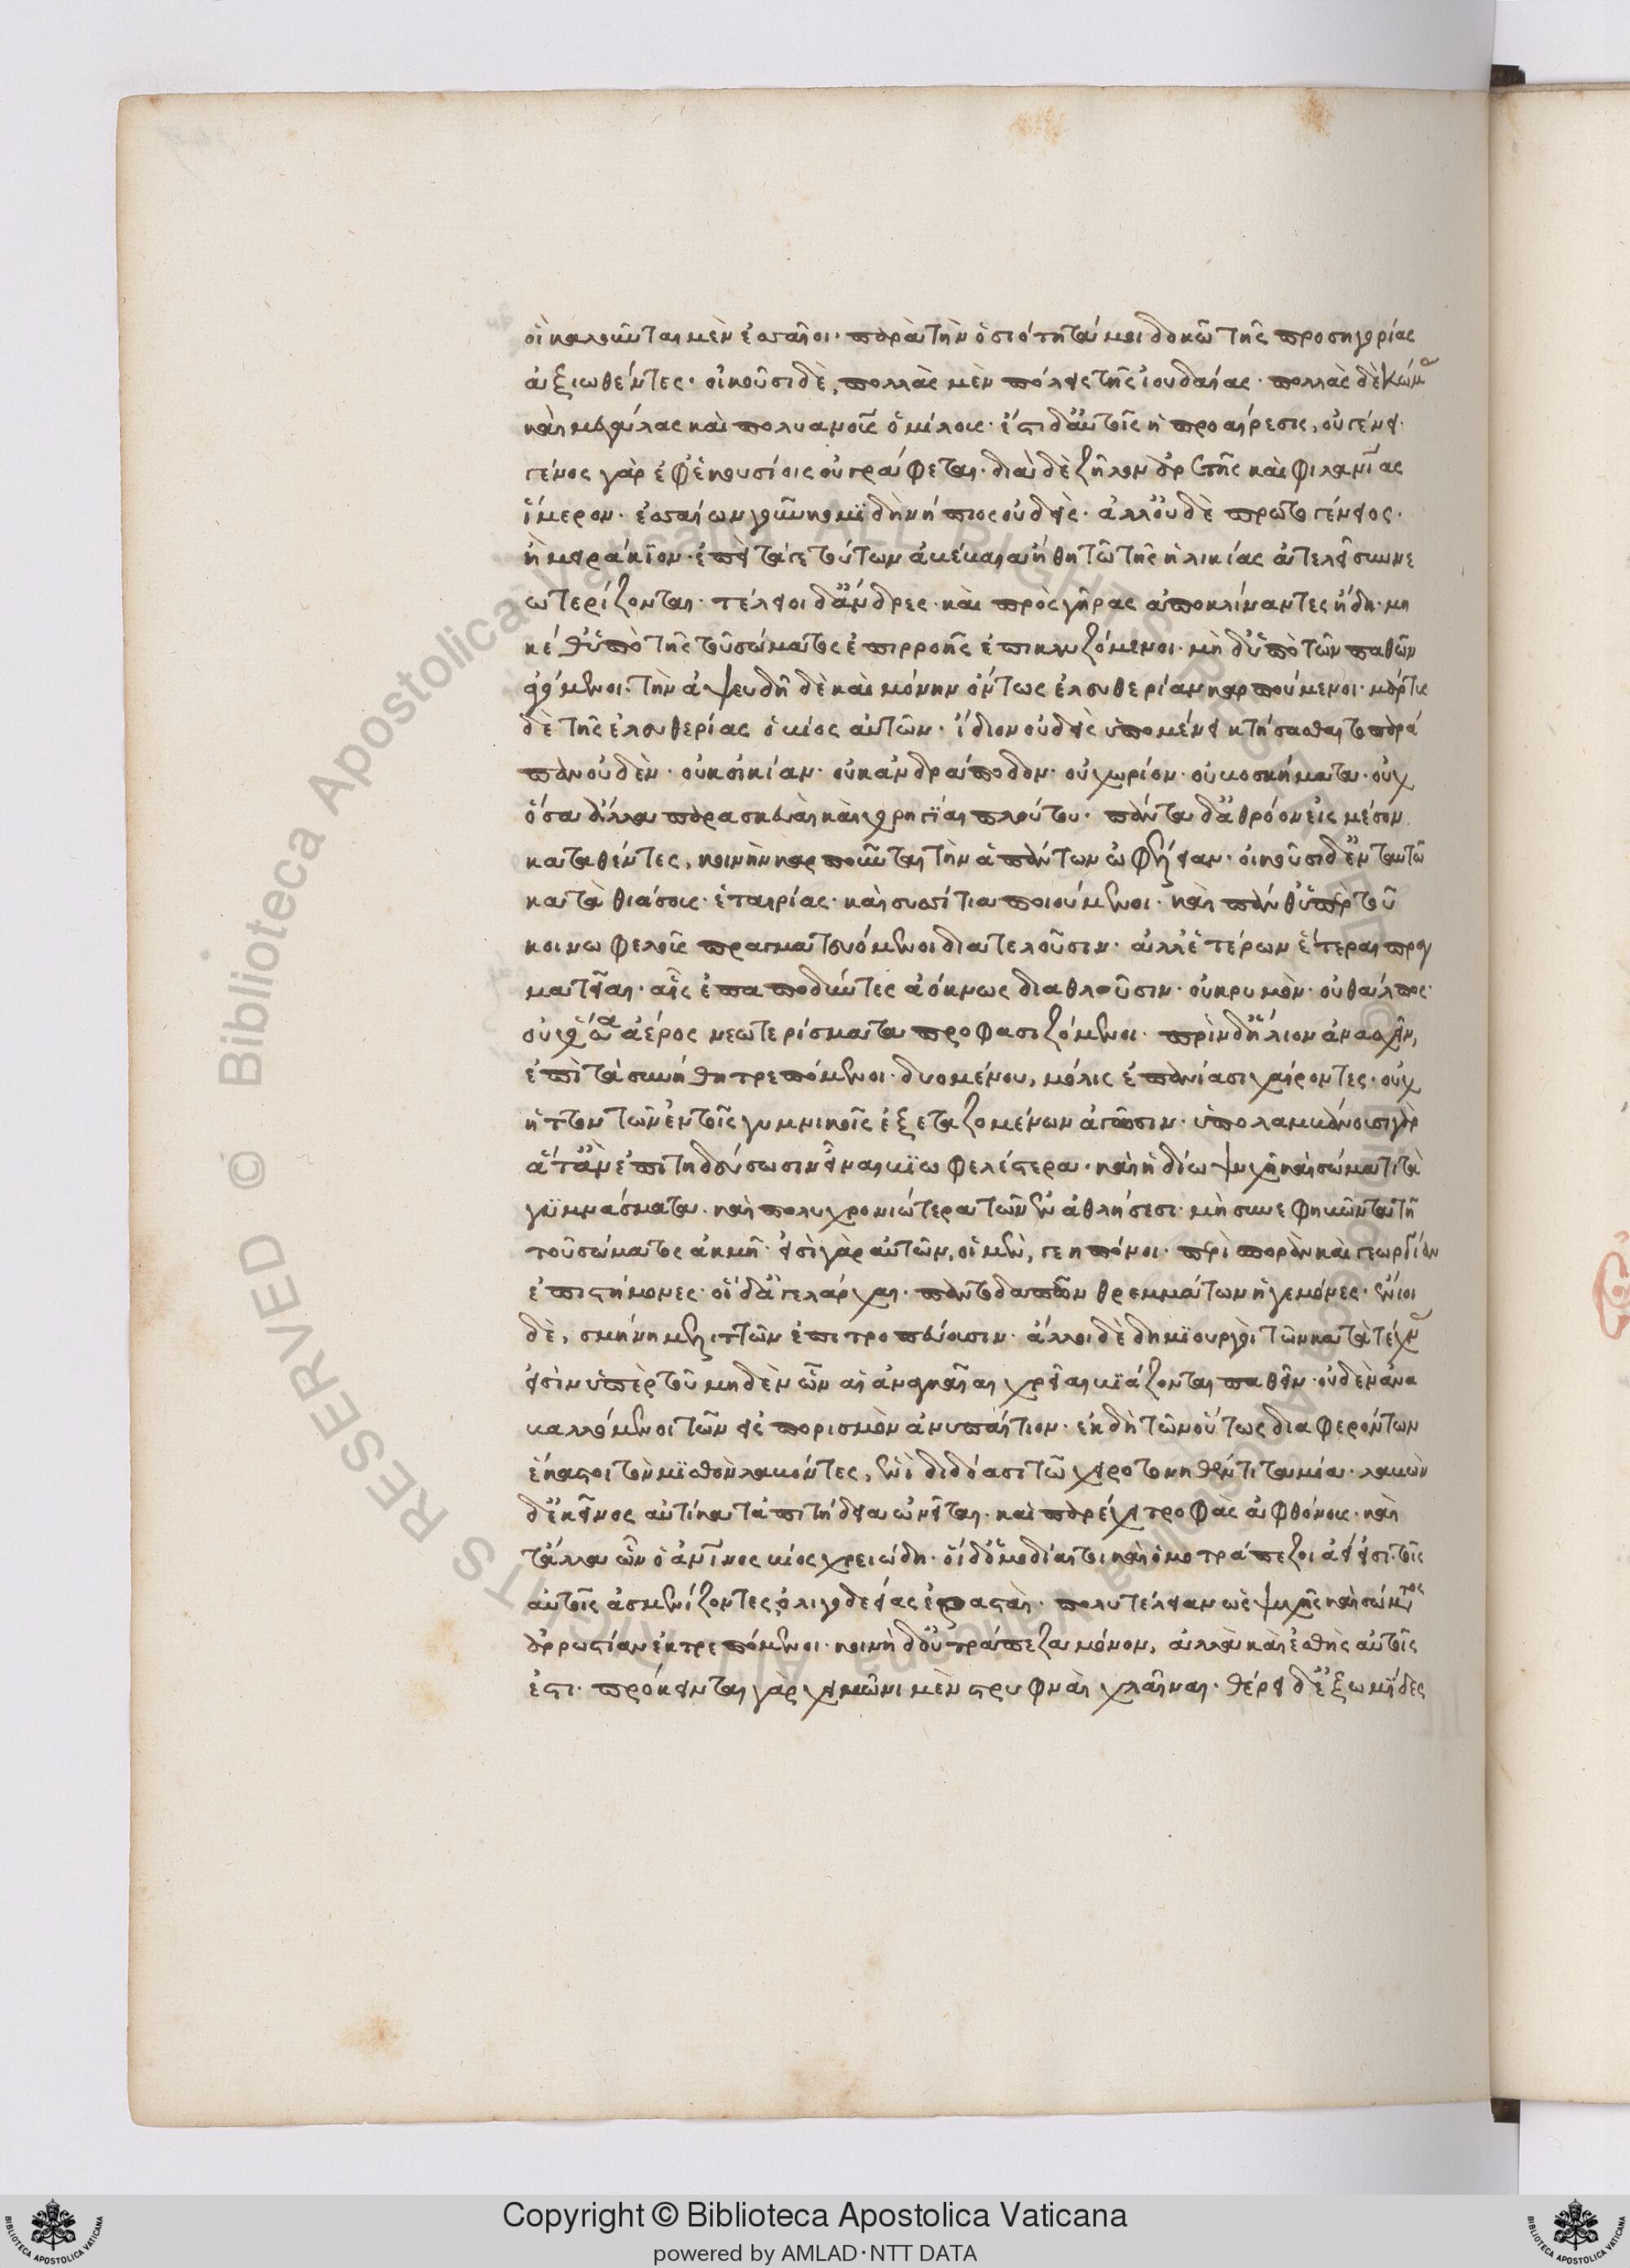 οἳ καλοῦνται μὲν ἐσσαῖοι· παρὰ τὴν ὁσιότητά μοι δοκῶ τῆς προσηγορίας
ἀξιωθέντες· οἰκοῦσι δὲ, πολλὰς μὲν πόλεις τῆς ἰουδαίας· πολλὰς δὲ κώμας
καὶ μεγάλας καὶ πολυανους ὁμίλους· ἔστι δ' αὐτοῖς ἡ προαίρεσις, οὐ γένει·
γένος γὰρ ἐφ' ἑκουσίοις οὐ γράφεται· διὰ δὲ ζῆλον ἀρετῆς καὶ φιλανίας
ἵμερον· ἐσσαίων γοῦν κομιδῆ νήπιος οὐδεὶς· ἀλλ' οὐδὲ πρωτογένειος·
ἢ μειράκιον· ἐπεὶ τάγε τούτων ἀβέβαια ἤθη τῶ τῆς ἡλικίας ἀτελεῖ συννε
ωτερίζονται· τέλειοι δ' ἄνδρες· καὶ πρὸς γῆρας ἀποκλίναντες ἤδη· μη
κέθ' ὑπὸ τῆς τοῦ σώματος ἐπιρροῆς ἐπικλυζόμενοι· μὴ δ' ὑπὸ τῶν παθῶν
ἀγόμενοι· τὴν ἀψευδῆ δὲ καὶ μόνην ὄντως ἐλευθερίαν καρπούμενοι· μάρτυς
δὲ τῆς ἐλευθερίας ὁ βίος αὐτῶν· ἴδιον οὐδεὶς ὑπομένει κτήσασθαι τοπαρά
παν οὐδὲν· οὐκ οἰκίαν· οὐκ ἀνδράποδον· οὐ χωρίον· οὐ βοσκήματα· οὐχ
ὅσα ἄλλα παρασκευαὶ καὶ χορηγίαι πλούτου· πάντα δ' ἀθρόον εἰς μέσον
καταθέντες, κοινὴν καρποῦνται τὴν ἁπάντων ὠφέλειαν· οἰκοῦσι δ' ἐν ταυτῶ
κατὰ θιάσους· ἑταιρίας· καὶ συσσίτια ποιούμενοι· καὶ πάνθ' ὑπὲρ τοῦ
κοινωφελοῦς πραγματευόμενοι διατελοῦσιν· ἀλλ' ἑτέρων ἕτεραι πραγ
ματεῖαι· αἷς ἐπαποδύντες ἀόκνως διαθλοῦσιν· οὐ κρυμὸν· οὐ θάλπος·
οὐχ ὅσα ἀέρος νεωτερίσματα προφασιζόμενοι· πρὶν δ' ἥλιον ἀνασχεῖν,
ἐπὶ τὰ συνήθη τρεπόμενοι· δυομένου, μόλις ἐπανίασι χαίροντες· οὐχ
ἧττον τῶν ἐν τοῖς γυμνικοῖς ἐξεταζομένων ἀγῶσιν· ὑπολαμβάνουσι γὰρ
ἅττ' ἂν ἐπιτηδεύσωσιν εἶναι βιωφελέστερα· καὶ ἡδίω ψυχῆ καὶ σώματι τὰ
γυμνάσματα· καὶ πολυχρονιώτερα τῶν ἐν ἀθλήσεσι· μὴ συνεφηβῶντα τῆ
τοῦ σώματος ἀκμῆ· εἰσὶ γὰρ αὐτῶν, οἱ μὲν, γεηπόνοι· περὶ σπορὰν καὶ γεωργίαν
ἐπιστήμονες· οἱ δ' ἀγελάρχαι· παντοδαπῶν θρεμμάτων ἡγεμόνες· ἔνιοι
δὲ, σμήνη μελιττῶν ἐπιτροπεύουσιν· ἄλλοι δὲ δημιουργοὶ τῶν κατὰ τέχν
εἰσὶν ὑπὲρ τοῦ μηδὲν ὧν αἱ ἀναγκαῖαι χρεῖαι βιάζονται παθεῖν· οὐδὲν ἀνα
βαλλόμενοι τῶν εἰς πορισμὸν ἀνυπαίτιον· ἐκ δὴ τῶν οὕτως διαφερόντων
ἕκαστοι τὸν μισθὸν λαβόντες, ἑνὶ διδόασι τῶ χειροτονηθέντι ταμία· λαβὼν
δ' ἐκεῖνος αὐτίκα τἀπιτήδεια ὠνεῖται· καὶ παρέχει τροφὰς ἀφθόνους· καὶ
τἆλλα ὧν ὁ ἀνῖνος βίος χρειώδη· οἱ δ' ὁμοδίαιτοι καὶ ὁμοτράπεζοι ἀεὶ εἰσὶ τοῖς
αὐτοῖς ἀσμενίζοντες, ὀλιγοδεείας ἐρασταὶ· πολυτέλειαν ὡς ψυχῆς καὶ σώματος
ἀρρωστίαν ἐκτρεπόμενοι· κοινὴ δ' οὐ τράπεζα μόνον, ἀλλὰ καὶ ἐσθὴς αὐτοῖς
ἐστι· πρόκεινται γὰρ χειμῶνι μὲν στρυφναὶ χλαῖναι· θέρει δ' ἐξωμίδες